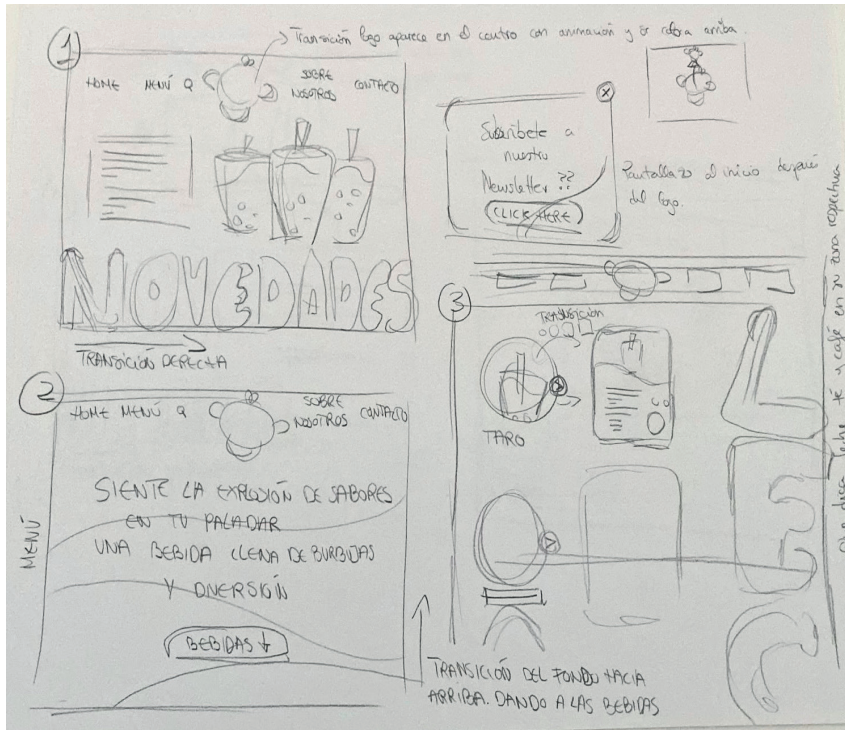 1
Transición logo aparece en el centro con animación y se coloca arriba.
HOME MENÚ Q SOBRE NOSOTROS CONTACTO
NOVEDADES
TRANSICIÓN DERECHA
X
Subscribete a
nuestro
Newsletter ??
CLICK HERE
Pantallazo al inicio después
del logo.
2
HOME MENÚ Q SOBRE NOSOTROS CONTACTO
MENÚ
SIENTE LA EXPLOSIÓN DE SABORES
EN TU PALADAR
UNA BEBIDA LLENA DE BURBUJAS
Y DIVERSIÓN
BEBIDAS ↓
TRANSICIÓN DEL FONDO HACIA
ARRIBA. DANDO A LAS BEBIDAS
3
TRANSICIÓN
TARO
LEC
Que diga leche té y café en su zona respectiva